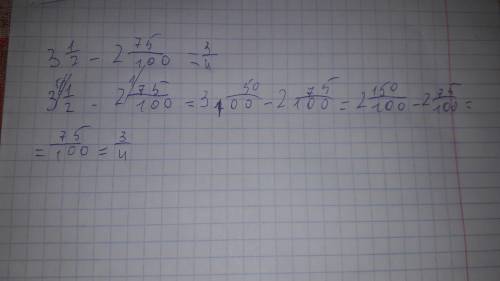 3 1/2 - 2 75/100 = 3/4
3 50/ 1/2 - 2 1/ 75/100 = 3 50/100 - 2 75/100 = 2 150/100 - 2 75/100 =
= 75/100 = 3/4